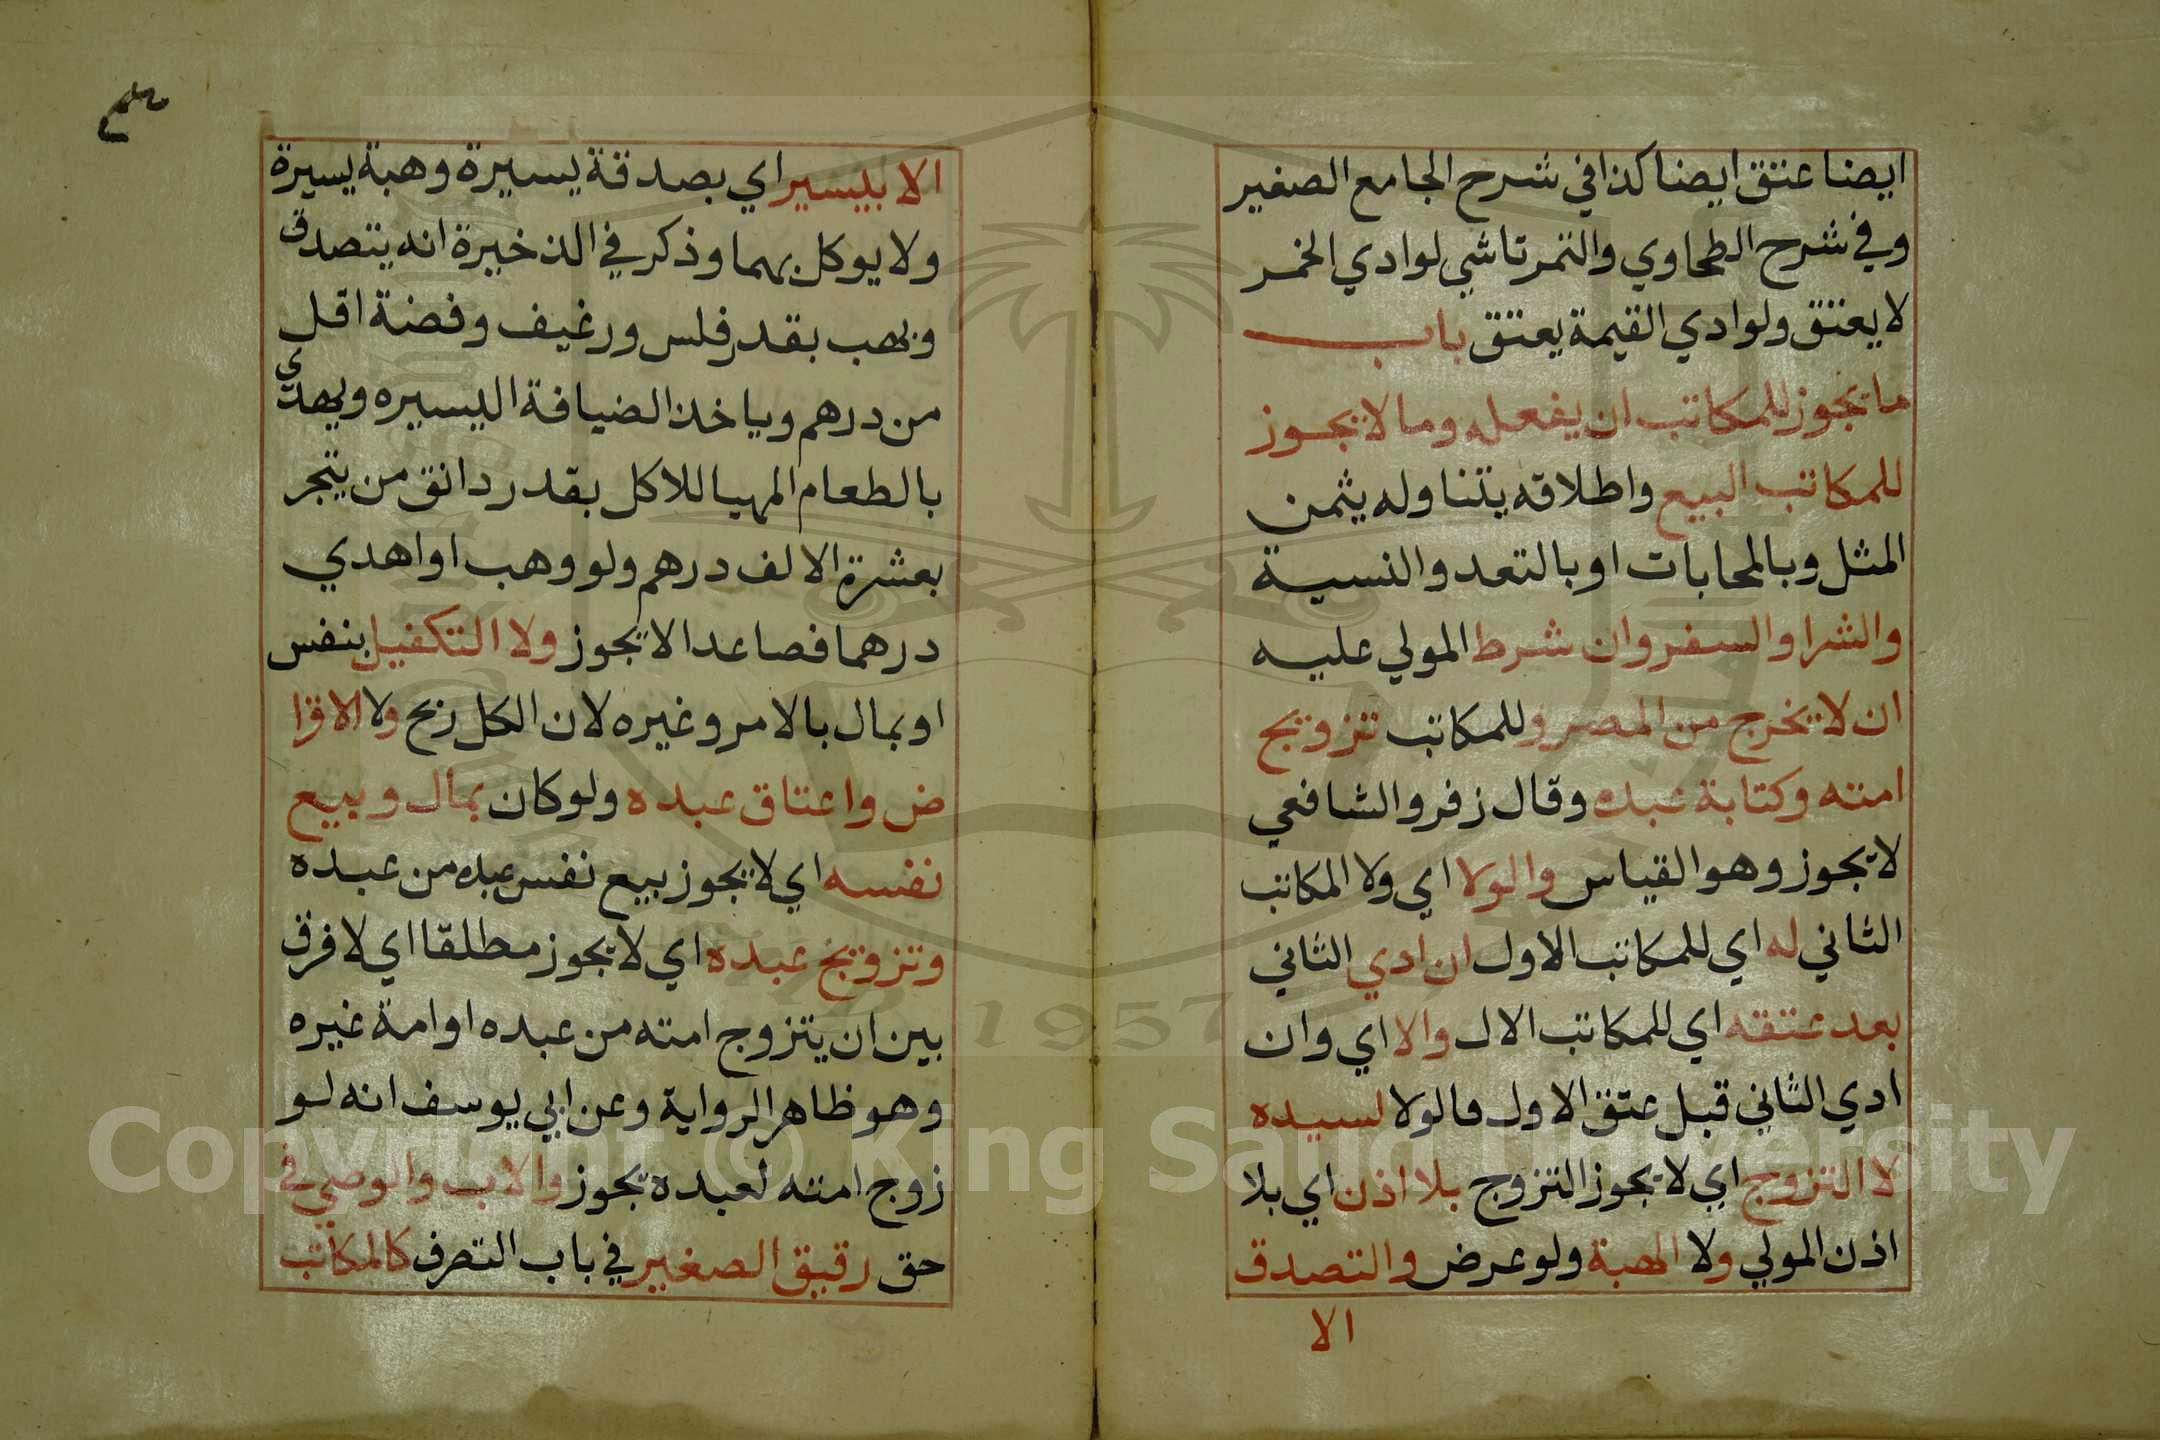 ايضا عتق ايضا كذا في شرح الجامع الصغير
وفي شرح الطحاوي والتمرتاشي لو ادي الخمر
لا يعتق ولو ادي القيمة يعتق باب
ما يجوز للمكاتب ان يفعله وما لا يجوز
للمكاتب البيع واطلاقه يتناوله بثمن
المثل وبالمحابات او بالتعد والنسية
والشرا والسفر وان شرط المولي عليه
ان لا يخرج من المصر وللمكاتب تزويج
امته وكتابة عبده وقال زفر والشافعي
لا يجوز وهو القياس والولا اي ولا المكاتب
الثاني له اي للمكاتب الاول ان ادي الثاني
بعد عتقه اي للمكاتب الال والا اي وان
ادي الثاني قبل عتق الاول فالولا لسيده
لا التزوج اي لا يجوز التزوج بلا اذن اي بلا
اذن المولي ولا الهبة ولو عرض والتصدق
الا
الا بيسير اي بصدقة يسيرة وهبة يسيرة
ولا يوكل بهما وذكر في الذخيرة انه يتصدق
ويهب بقدر فلس ورغيف وفضة اقل
من درهم وياخذ الضيافة اليسيره ويهدي
بالطعام المهيا للاكل بقدر دانق من يتجر
بعشرة الالف درهم ولو وهب او اهدي
درهما فصاعدا لا يجوز ولا التكفيل بنفس
او بمال بالامر وغيره لان الكل ربح ولا الاقرا
ض واعتاق عبده ولو كان بمال وبيع
نفسه اي لا يجوز بيع نفس عبده من عبده
وتزويج عبده اي لا يجوز مطلقا اي لا فرق
بين ان يتزوج امته من عبده او امة غيره
وهو ظاهر الرواية وعن ابي يوسف انه لو
زوج امته لعبده يجوز والاب والوصي في
حق رقيق الصغير في باب التصرف كالمكاتب
Copyright © King Saud University
1957